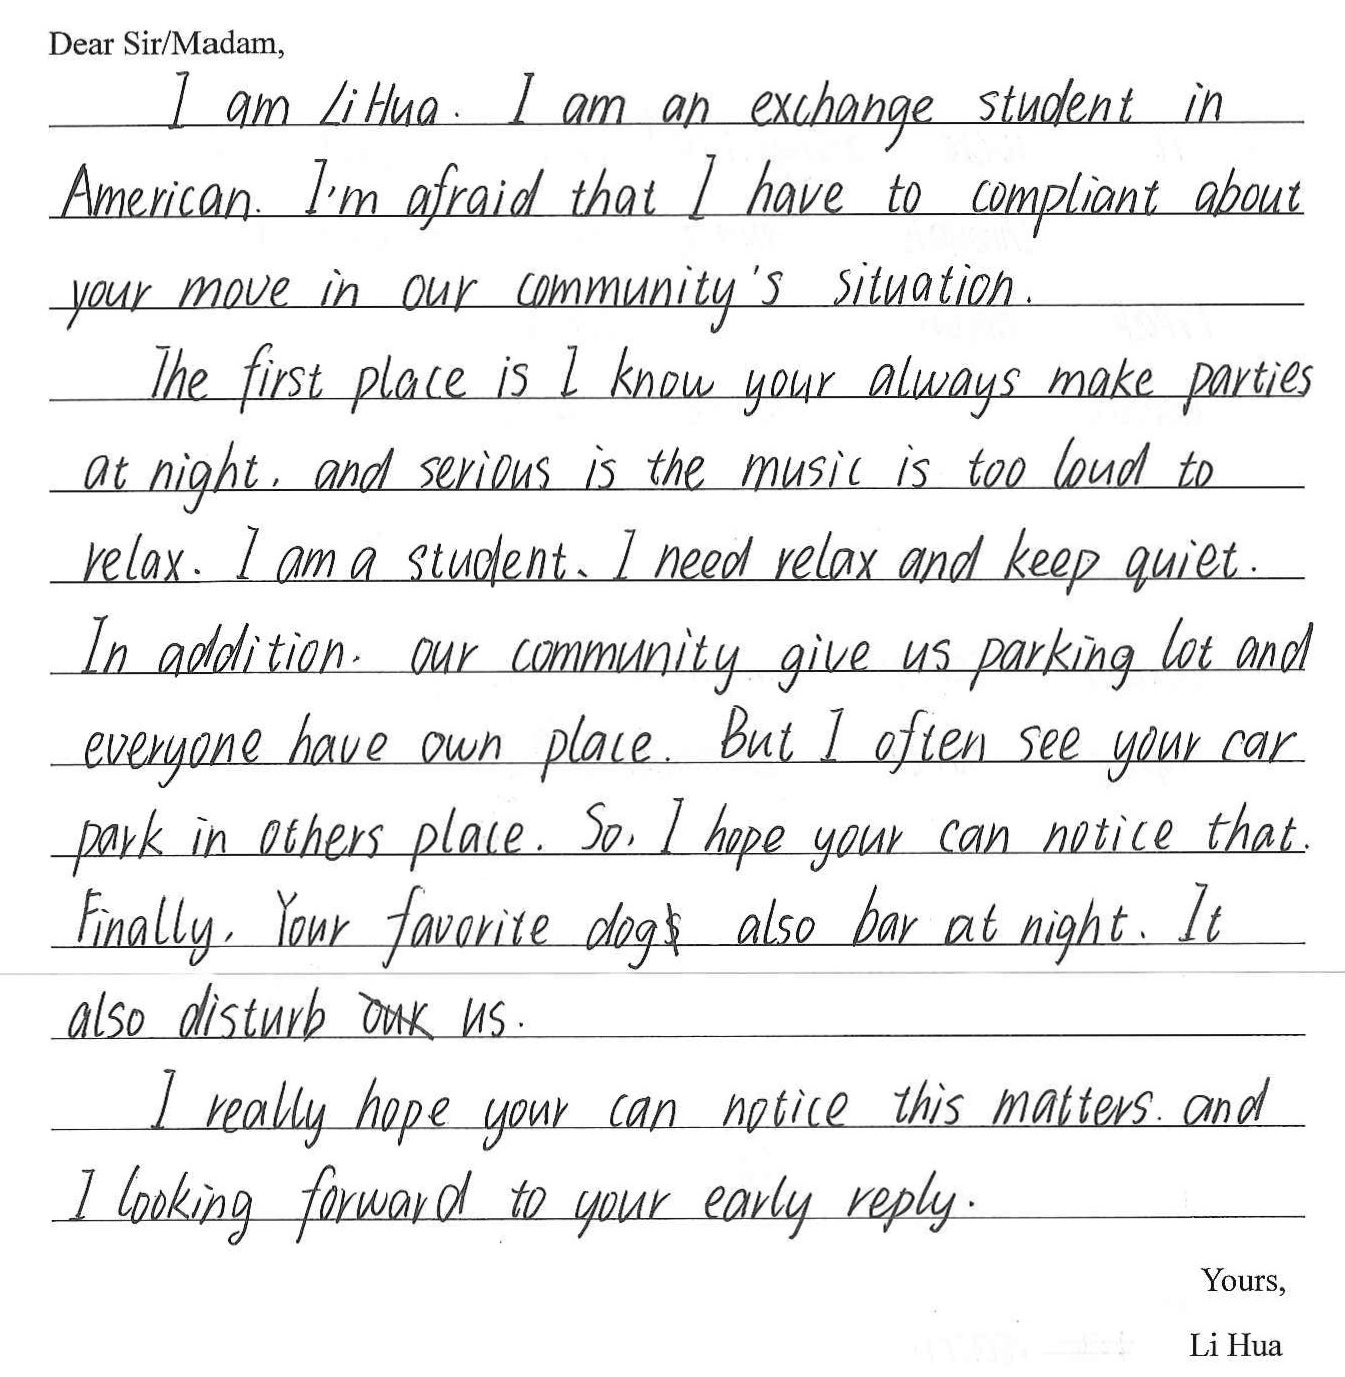 Dear Sir/Madam,
I am Li Hua. I am an exchange student in
American. I'm afraid that I have to compliant about
your move in our community's situation.
The first place is I know your always make parties
at night, and serious is the music is too loud to
relax. I am a student、I need relax and keep quiet.
In addition. our community give us parking lot and
everyone have own place. But I often see your car
park in others place. So, I hope your can notice that.
Finally, Your favorite dog also bar at night. It
also disturb us.
I really hope your can notice this matters. and
I looking forward to your early reply.
Yours,
Li Hua